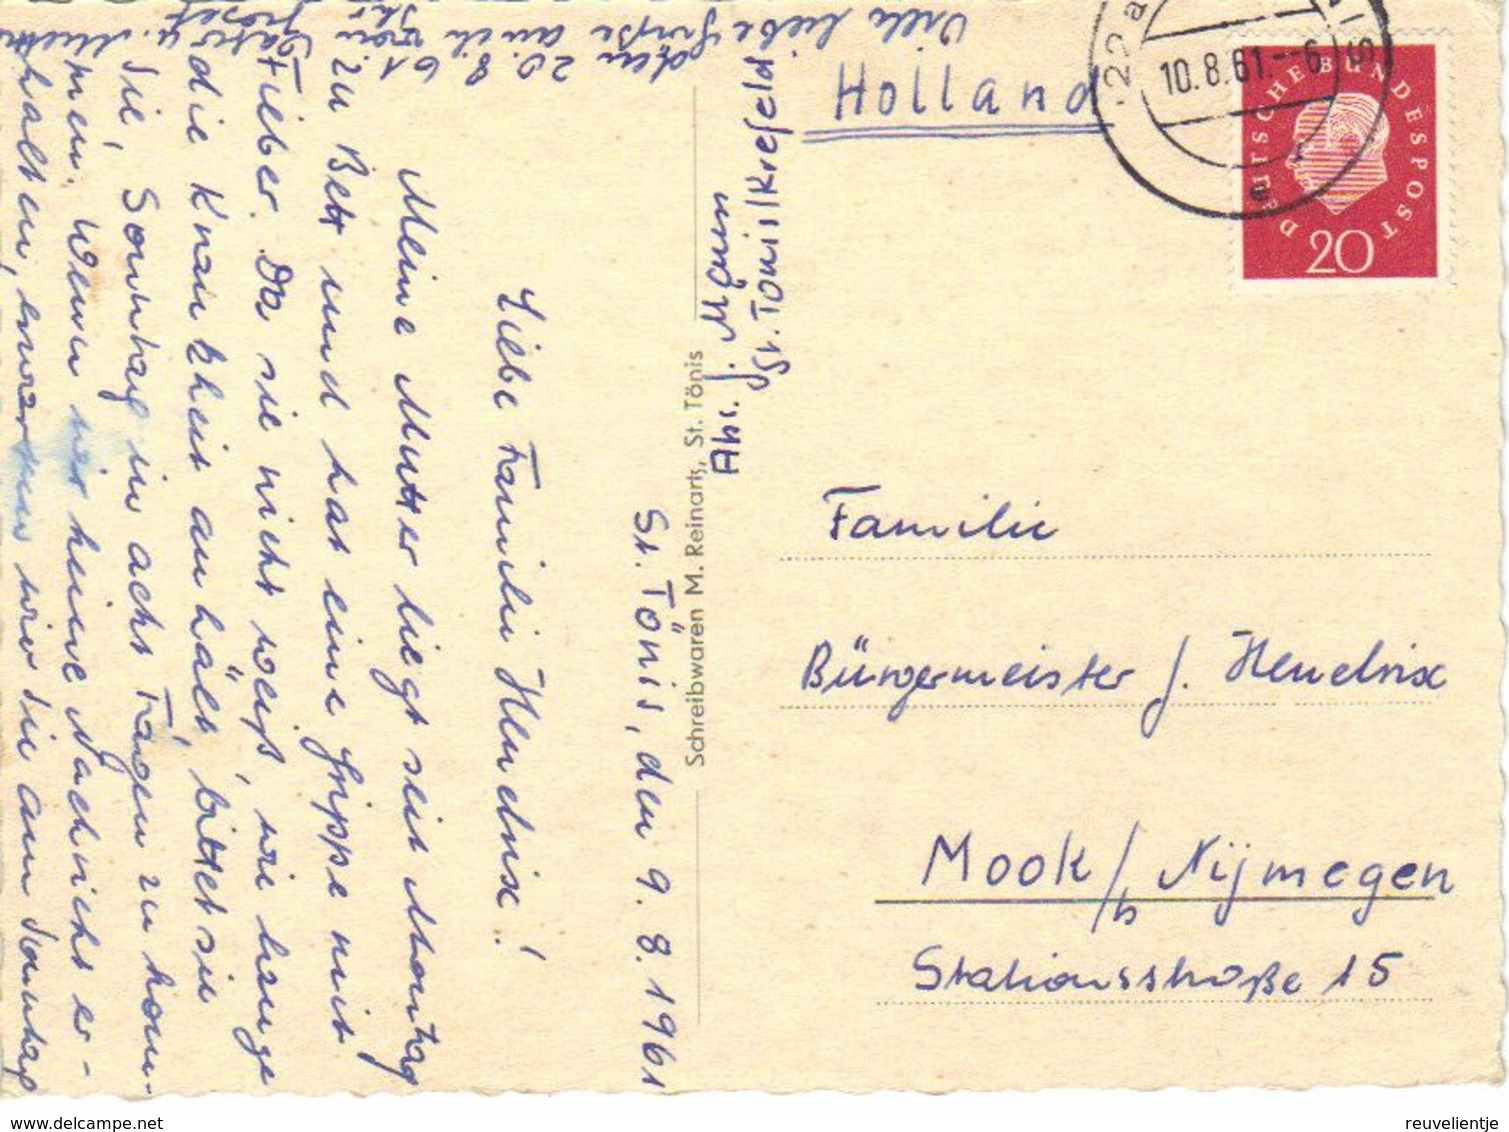 St. Tönis, den 9. 8. 1961
Liebe Familie Hendrix!
Meine Mutter liegt seit Montag
zu Bett und hat eine Grippe mit
Fieber. Da sie nicht weiß, wie lange
die Krankheit anhält, bittet sie
Sie, Sonntag in acht Tagen zu kom-
men. Wenn wir keine Nachricht er-
halten, erwarten wir Sie am Sonntag
den 20. 8. 61
Viele liebe Grüße auch von
Vater u. Mutter
Ihr Josef
Schreibwaren M. Reinartz, St. Tönis
Abs. J. Mörin
St. Tönis/Krefeld
Holland
10.8.61.-6
DEUTSCHE BUNDESPOST
20
Familie
Bürgermeister J. Hendrix
Mook / b Nijmegen
Stationsstraße 15
delcampe.net
reuvelientje